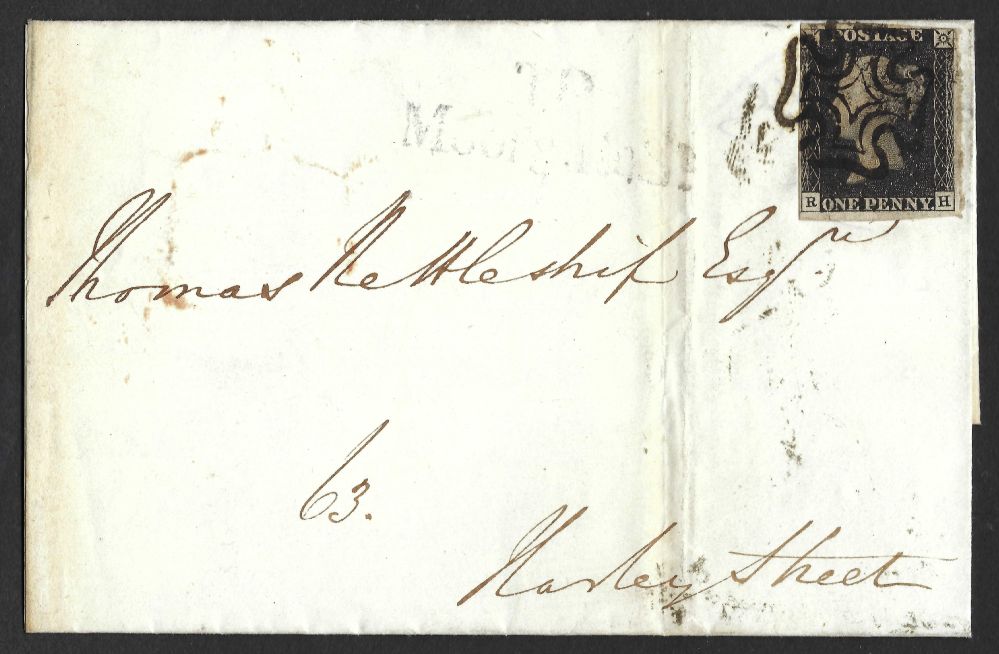 POSTAGE
R ONE PENNY. H
Thomas Nettleship Esqre
63.
Harley Street